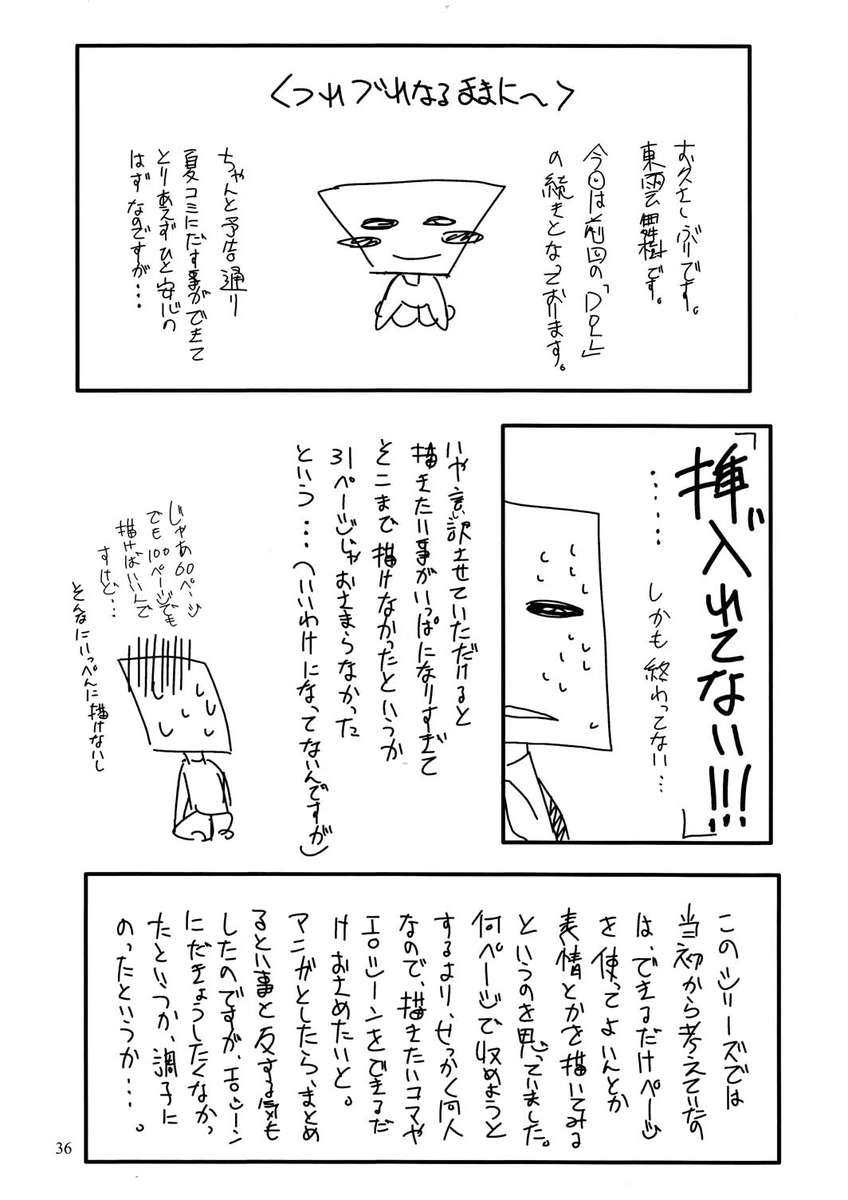 〈つれづれなるままに〜〉
お久さしぶりです。
東雲龍樹です。
今回は前回の「DPL」
の続きとなっております。
ちゃんと予告通り
夏コミにだす事ができて
とりあえずひと安心の
はずなのですが・・・
「挿入れてない!!!」
・・・・・・しかも終わってない・・・
いや言い訳させていただけると
描きたい事がいっぱになりすぎて
そこまで描けなかったというか
31ページじゃおさまらなかった
という・・・(いいわけになってないんですが)
じゃあ60ページ
でも100ページでも
描けばいいんで
すけど・・・
そんなにいっぺんに描けないし
このシリーズでは
当初から考えていたの
は、できるだけページ
を使ってよいんとか
表情とかを描いてみる
というのを思っていました。
何ページで収めようと
するより、せっかく同人
なので、描きたいコマや
エロシーンをできるだ
けおさめたいと。
マンガとしたら、まとめ
るとい事と反する気も
したのですが、エロシーン
にだきょうしたくなかっ
たといつか、調子に
のったというか・・・。
36